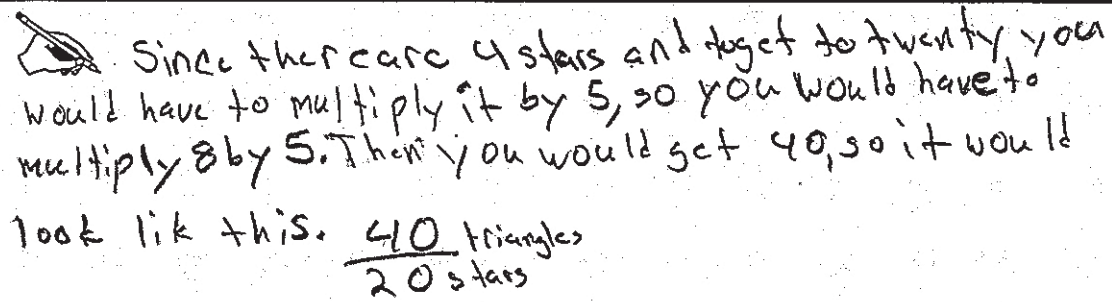 Since there are 4 stars and to get to twenty you
would have to multiply it by 5, so you would have to
multiply 8 by 5. Then you would get 40, so it would
look lik this. 40 triangles
20 stars